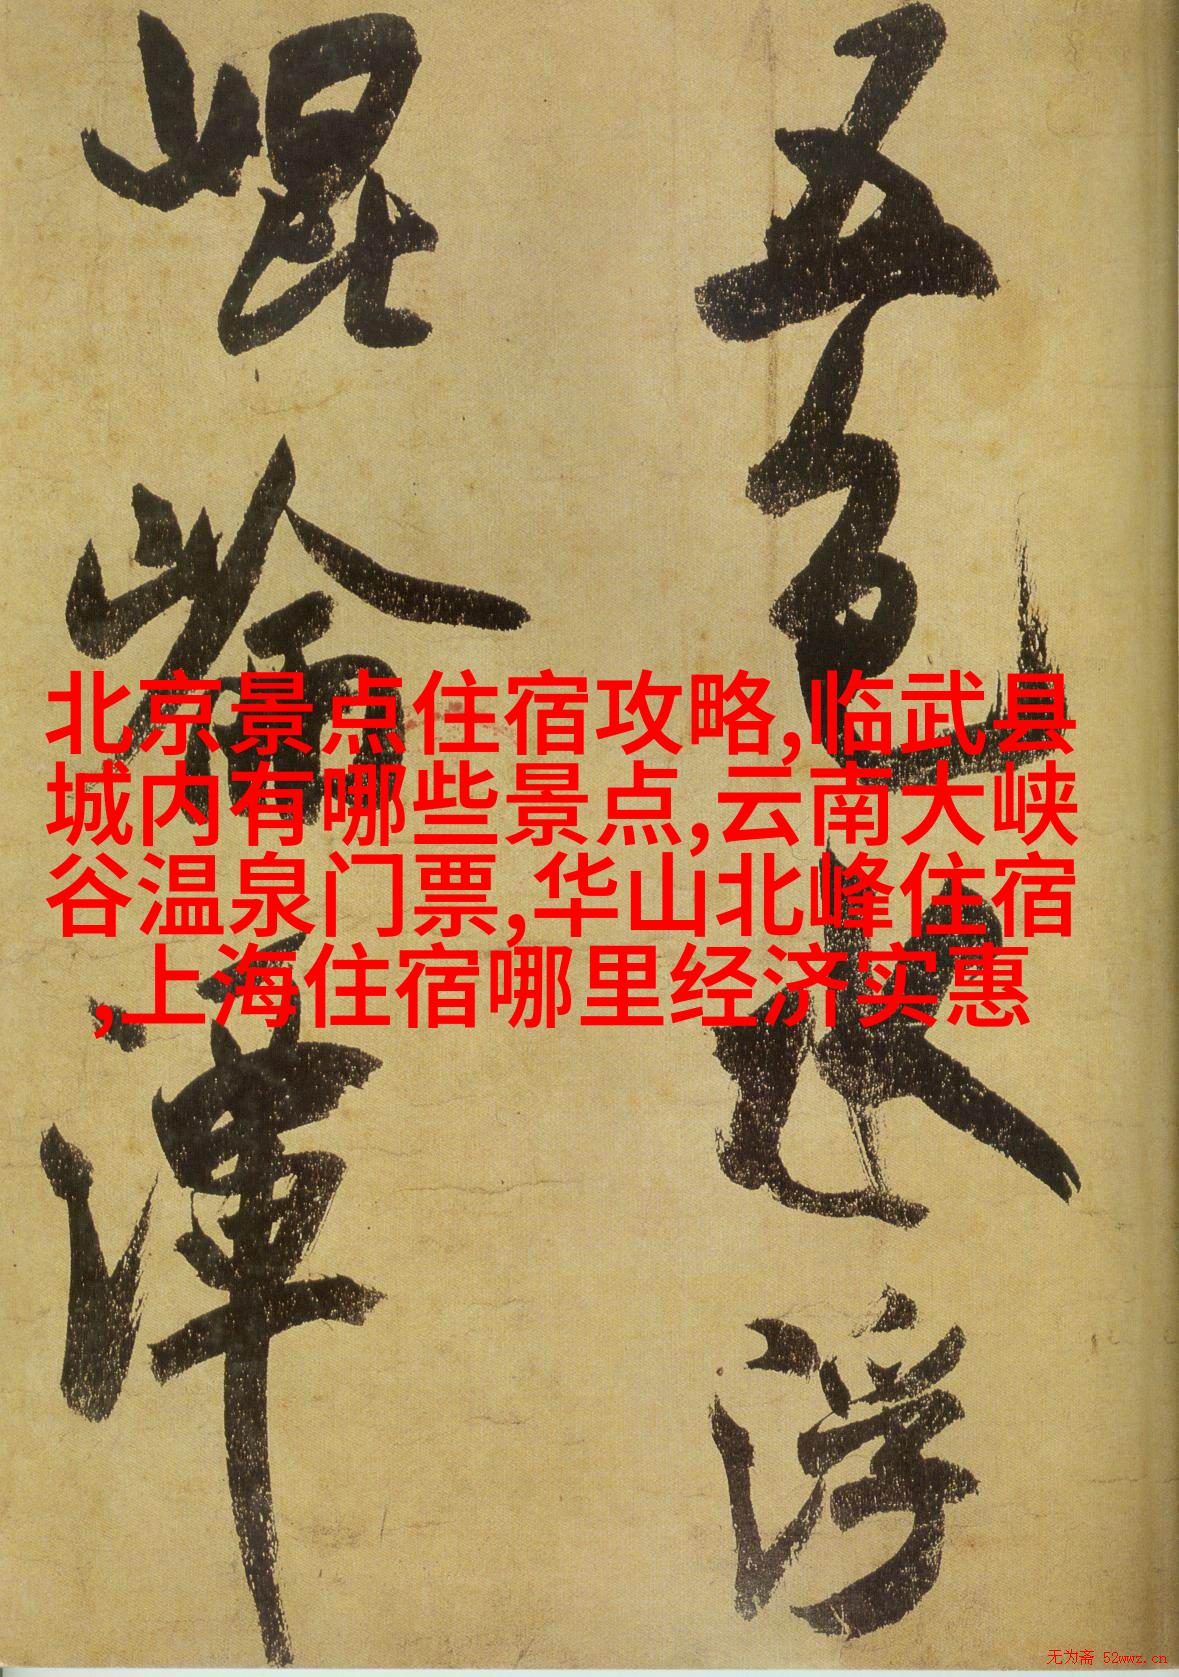 五色水浮
崐崙渾
北京景点住宿攻略,临武县
城内有哪些景点,云南大峡
谷温泉门票,华山北峰住宿
,上海住宿哪里经济实惠
无为斋 52wwz.cn